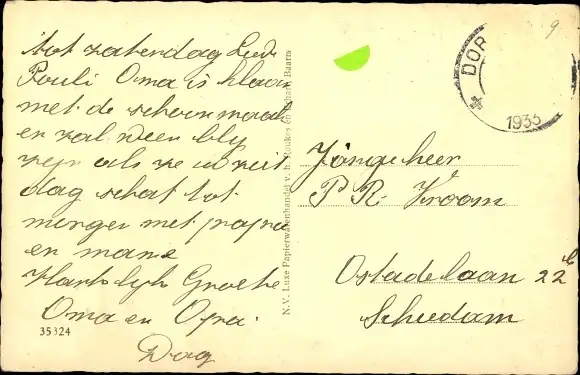 tot zaterdag Lieve
Pouli Oma is klaar
met de schoonmaak
en zal weer bly
zyn als ze u ziet
dag schat tot
morgen met papa
en mama
Hartelyk Groete
Oma en Opa.
Dag
35324
N.V. Luxe Papierwarenhandel v. h. Roukes Baarn
DOR
1933
9
Jongeheer
P R. Vroom
Ostadelaan 22 b
Schiedam